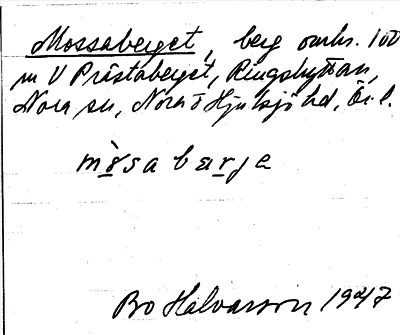 Mossaberget, berg omkr. 100
m V Prästaberget, Ringshyttan,
Nora sn, Nora o Hjulsjö hd, Ör. l.
mòsa bærje
Bo Halvarson 1947